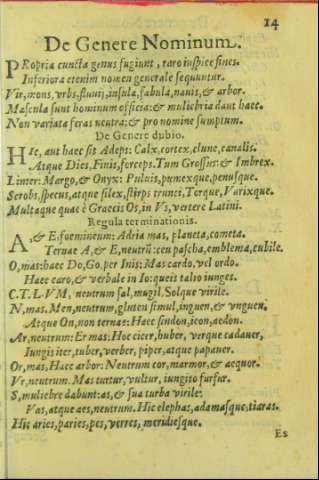 14
De Genere Nominum.
PRopria cuncta genus fugiunt, raro inspice fines.
Inferiora etenim nomen generale sequuntur.
Vir, mons, vrbs, fluuij, insula, fabula, nauis, & arbor.
Mascula sunt hominum officia: & muliebria dant haec.
Non variata feras neutra: & pro nomine sumptum.
De Genere dubio.
HIc, aut haec sit Adeps: Calx, cortex, clune, canalis.
Atque Dies, Finis, forceps. Tum Grossus: & Imbrex.
Linter: Margo, & Onyx: Puluis, pumexque, penusque.
Serobs, specus, atque silex, stirps trunci, Torque, Varixque.
Multaque quae è Graecis Os, in Vs, vertere Latini.
Regula terminationis.
A, & E, foemineum: Adria mas, planeta, cometa.
Ternae A, & E, neutrū: ceu pascha, emblema, cubile.
O, mas: haec Do, Go, per Inis: Mas cardo, vel ordo.
Haec caro, & verbale in Io: queis talio iunges.
C. T. L. VM, neutrum sal, mugil, Solque virile.
N, mas. Men, neutrum, gluten simul, inguen, & vnguen.
Atque On, non ternas: Haec sindon, icon, aedon.
Ar, neutrum: Er mas: Hoc cicer, huber, verque cadauer,
Iungis iter, tuber, verber, piper, atque papauer.
Or, mas, Haec arbor: Neutrum cor, marmor, & aequor.
Vr, neutrum. Mas turtur, vultur, iungito furfur.
S, muliebre dabunt: as, & sua turba virile:
Vas, atque aes, neutrum. Hic elephas, adamasque, tiaras.
Hic aries, paries, pes, verres, meridiesque.
Es